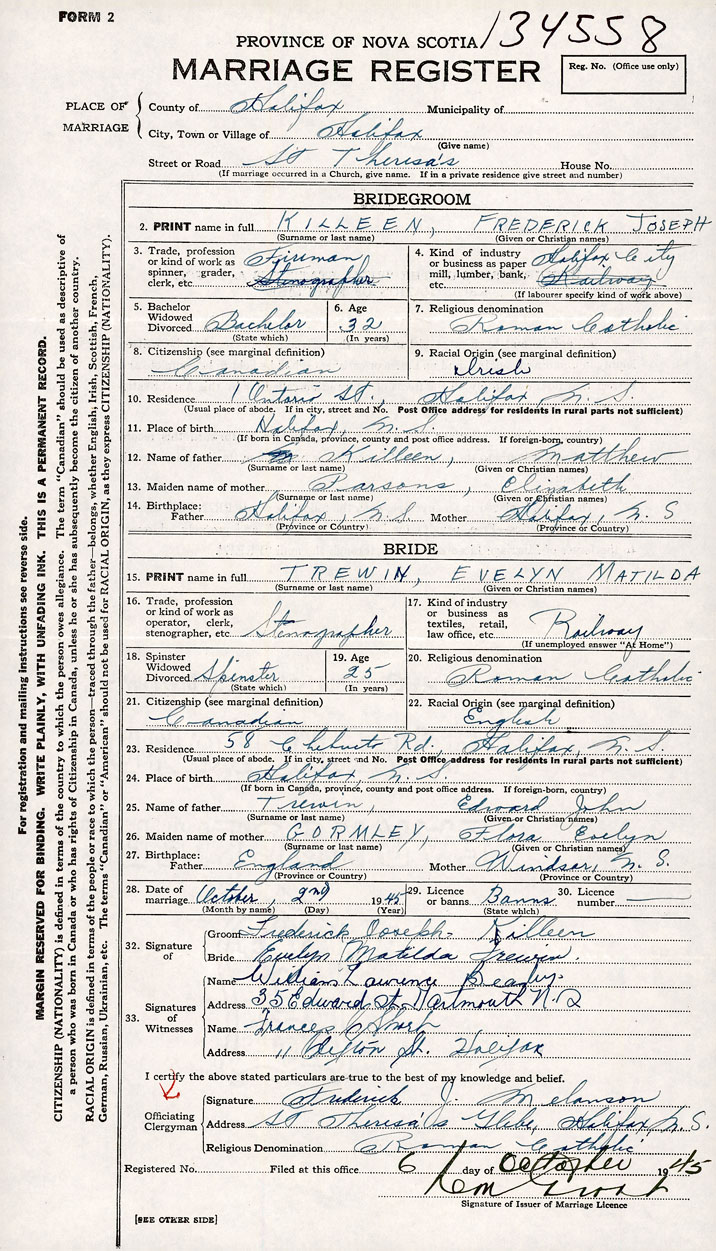 FORM 2
134558
PROVINCE OF NOVA SCOTIA
MARRIAGE REGISTER
Reg. No. (Office use only)
PLACE OF MARRIAGE
County of Halifax Municipality of
City, Town or Village of Halifax
(Give name)
Street or Road St Theresa's House No.
(If marriage occurred in a Church, give name. If in a private residence give street and number)
BRIDEGROOM
2. PRINT name in full KILLEEN, FREDERICK JOSEPH
(Surname or last name) (Given or Christian names)
3. Trade, profession or kind of work as spinner, grader, clerk, etc. Fireman Stenographer
4. Kind of industry or business as paper mill, lumber, bank, etc. Halifax City Railway
(If labourer specify kind of work above)
5. Bachelor Widowed Divorced Bachelor
(State which)
6. Age 32
(In years)
7. Religious denomination
Roman Catholic
8. Citizenship (see marginal definition)
Canadian
9. Racial Origin (see marginal definition)
Irish
10. Residence 1 Ontario St., Halifax, N.S.
(Usual place of abode. If in city, street and No. Post Office address for residents in rural parts not sufficient)
11. Place of birth Halifax, N.S.
(If born in Canada, province, county and post office address. If foreign-born, country)
12. Name of father Killeen, Matthew
(Surname or last name) (Given or Christian names)
13. Maiden name of mother Parsons, Elizabeth
(Surname or last name) (Given or Christian names)
14. Birthplace: Father Halifax, N.S. Mother Halifax, N S
(Province or Country) (Province or Country)
BRIDE
15. PRINT name in full TREWIN, EVELYN MATILDA
(Surname or last name) (Given or Christian names)
16. Trade, profession or kind of work as operator, clerk, stenographer, etc Stenographer
17. Kind of industry or business as textiles, retail, law office, etc. Railway
(If unemployed answer "At Home")
18. Spinster Widowed Divorced Spinster
(State which)
19. Age 25
(In years)
20. Religious denomination
Roman Catholic
21. Citizenship (see marginal definition)
Canadian
22. Racial Origin (see marginal definition)
English
23. Residence 58 Chebucto Rd., Halifax, N.S.
(Usual place of abode. If in city, street and No. Post Office address for residents in rural parts not sufficient)
24. Place of birth Halifax, N.S.
(If born in Canada, province, county and post office address. If foreign-born, country)
25. Name of father Trewin, Edward John
(Surname or last name) (Given or Christian names)
26. Maiden name of mother GORMLEY, Flora Evelyn
(Surname or last name) (Given or Christian names)
27. Birthplace: Father England Mother Windsor, N.S.
(Province or Country) (Province or Country)
28. Date of marriage October, 2nd 1945
(Month by name) (Day) (Year)
29. Licence or banns. Banns
(State which)
30. Licence number
32. Signature of
Groom Frederick Joseph Killeen
Bride Evelyn Matilda Trewin.
33. Signatures of Witnesses
Name William Laurence
Address 35 Edward St. Dartmouth N.S
Name Frances
Address 11 Clifton St. Halifax
I certify the above stated particulars are true to the best of my knowledge and belief.
Officiating Clergyman
Signature Frederick J. Melanson
Address St Theresa's Glebe, Halifax, N.S.
Religious Denomination Roman Catholic
Registered No. Filed at this office 6 day of October 1945
Signature of Issuer of Marriage Licence
[SEE OTHER SIDE]
For registration and mailing instructions see reverse side.
MARGIN RESERVED FOR BINDING. WRITE PLAINLY, WITH UNFADING INK. THIS IS A PERMANENT RECORD.
CITIZENSHIP (NATIONALITY) is defined in terms of the country to which the person owes allegiance. The term "Canadian" should be used as descriptive of
a person who was born in Canada or who has rights of Citizenship in Canada, unless he or she has subsequently become the citizen of another country.
RACIAL ORIGIN is defined in terms of the people or race to which the person—traced through the father—belongs, whether English, Irish, Scottish, French,
German, Russian, Ukrainian, etc. The terms "Canadian" or "American" should not be used for RACIAL ORIGIN, as they express CITIZENSHIP (NATIONALITY).